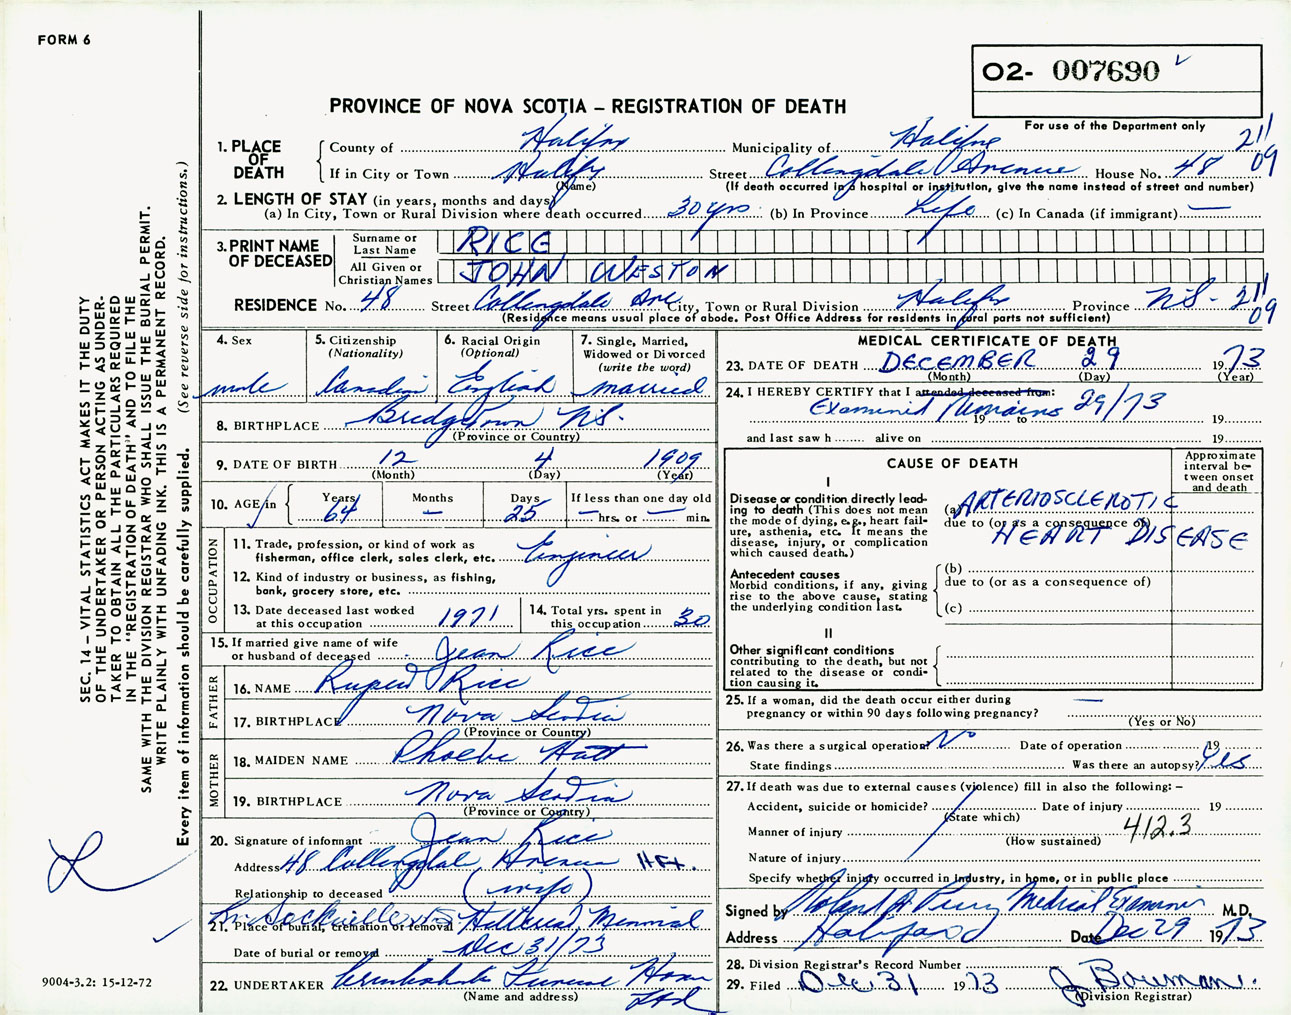 FORM 6
O2- 007690
PROVINCE OF NOVA SCOTIA – REGISTRATION OF DEATH
For use of the Department only
1. PLACE OF DEATH
County of Halifax Municipality of Halifax 211
If in City or Town Halifax Street Collingdale Avenue House No. 48 09
(Name) (If death occurred in a hospital or institution, give the name instead of street and number)
2. LENGTH OF STAY (in years, months and days)
(a) In City, Town or Rural Division where death occurred 30 yrs (b) In Province Life (c) In Canada (if immigrant) —
3. PRINT NAME OF DECEASED
Surname or Last Name RICE
All Given or Christian Names JOHN WESTON
RESIDENCE No. 48 Street Collingdale Ave. City, Town or Rural Division Halifax Province N.S. 211
(Residence means usual place of abode. Post Office Address for residents in rural parts not sufficient) 09
4. Sex
male
5. Citizenship
(Nationality)
Canadian
6. Racial Origin
(Optional)
English
7. Single, Married,
Widowed or Divorced
(write the word)
married
8. BIRTHPLACE Bridgetown N.S.
(Province or Country)
9. DATE OF BIRTH 12 4 1909
(Month) (Day) (Year)
10. AGE in Years 64 Months — Days 25 If less than one day old
— hrs. or — min.
OCCUPATION
11. Trade, profession, or kind of work as
fisherman, office clerk, sales clerk, etc. Engineer
12. Kind of industry or business, as fishing,
bank, grocery store, etc.
13. Date deceased last worked
at this occupation 1971
14. Total yrs. spent in
this occupation 30
15. If married give name of wife
or husband of deceased Jean Rice
FATHER
16. NAME Rupert Rice
17. BIRTHPLACE Nova Scotia
(Province or Country)
MOTHER
18. MAIDEN NAME Phoebe Hatt
19. BIRTHPLACE Nova Scotia
(Province or Country)
20. Signature of informant Jean Rice
Address 48 Collingdale Avenue Hfx.
Relationship to deceased (wife)
21. Place of burial, cremation or removal Memorial
Date of burial or removal Dec 31/73
22. UNDERTAKER Cruikshanks Funeral Home
(Name and address) Ltd
MEDICAL CERTIFICATE OF DEATH
23. DATE OF DEATH DECEMBER 29 1973
(Month) (Day) (Year)
24. I HEREBY CERTIFY that I attended deceased from:
Examined Remains 29/73
19 to 19
and last saw h alive on 19
CAUSE OF DEATH
Approximate
interval be-
tween onset
and death
I
Disease or condition directly lead-
ing to death (This does not mean
the mode of dying, e.g., heart fail-
ure, asthenia, etc. It means the
disease, injury, or complication
which caused death.)
(a) ARTERIOSCLEROTIC
due to (or as a consequence of)
HEART DISEASE
Antecedent causes
Morbid conditions, if any, giving
rise to the above cause, stating
the underlying condition last.
(b)
due to (or as a consequence of)
(c)
II
Other significant conditions
contributing to the death, but not
related to the disease or condi-
tion causing it.
25. If a woman, did the death occur either during
pregnancy or within 90 days following pregnancy? —
(Yes or No)
26. Was there a surgical operation? No Date of operation 19
State findings Was there an autopsy? Yes
27. If death was due to external causes (violence) fill in also the following: –
Accident, suicide or homicide? Date of injury 19
(State which)
Manner of injury 412.3
(How sustained)
Nature of injury
Specify whether injury occurred in industry, in home, or in public place
Signed by Roland A Perry Medical Examiner M.D.
Address Date Dec 29 1973
28. Division Registrar's Record Number
29. Filed Dec 31 1973 J Bowman.
(Division Registrar)
SEC. 14 – VITAL STATISTICS ACT MAKES IT THE DUTY
OF THE UNDERTAKER OR PERSON ACTING AS UNDER-
TAKER TO OBTAIN ALL THE PARTICULARS REQUIRED
IN THE "REGISTRATION OF DEATH" AND TO FILE THE
SAME WITH THE DIVISION REGISTRAR WHO SHALL ISSUE THE BURIAL PERMIT.
WRITE PLAINLY WITH UNFADING INK. THIS IS A PERMANENT RECORD.
Every item of information should be carefully supplied. (See reverse side for instructions.)
9004-3.2: 15-12-72